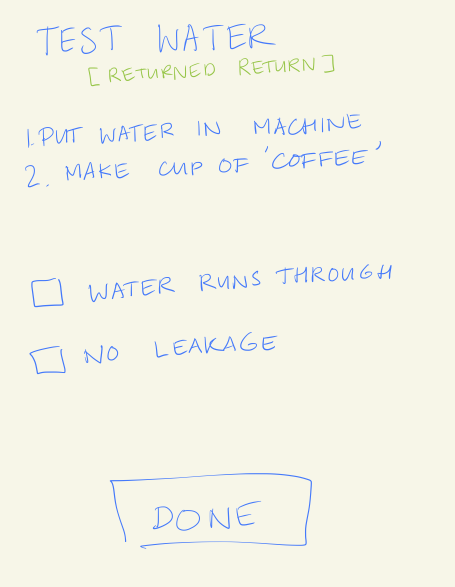 TEST WATER
[RETURNED RETURN]
1. PUT WATER IN MACHINE
2. MAKE CUP OF 'COFFEE'
WATER RUNS THROUGH
NO LEAKAGE
DONE